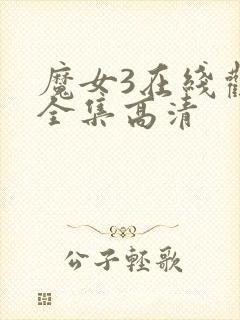 魔女3在线
全集高清
公子轻歌